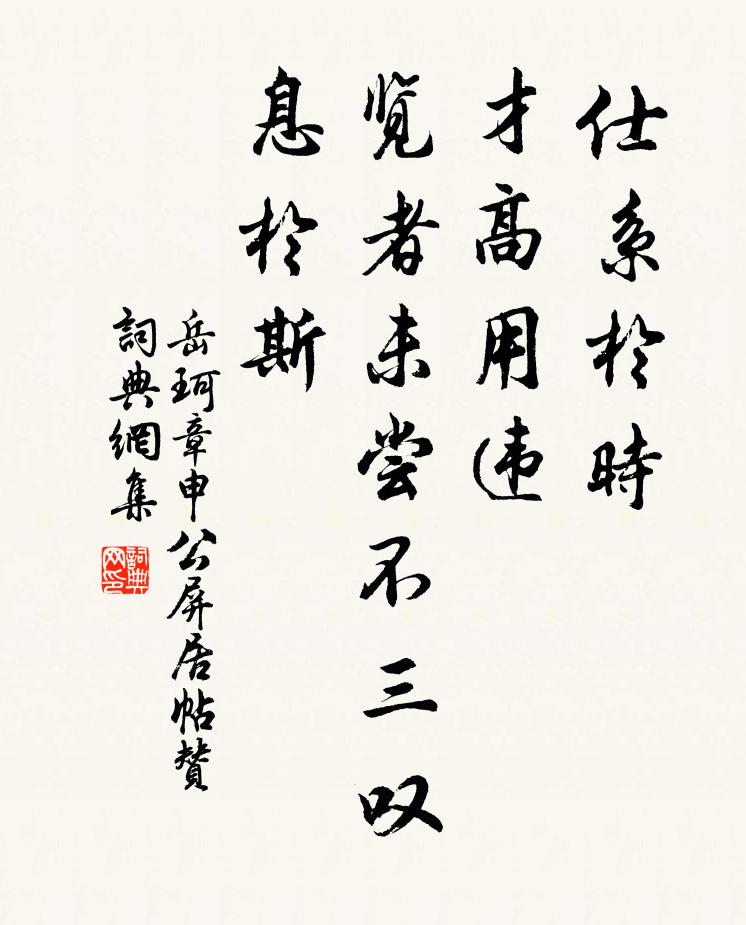 仕系於時
才高用违
覧者未尝不三叹
息於斯
岳珂章申公屏居帖赞
詞典網集
詞典网印